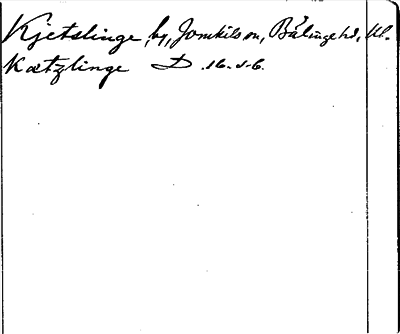 Kjetslinge, by, Jomkils sn, Bälinge hd, Ul.
Kætzlinge D. 16. s. 6.